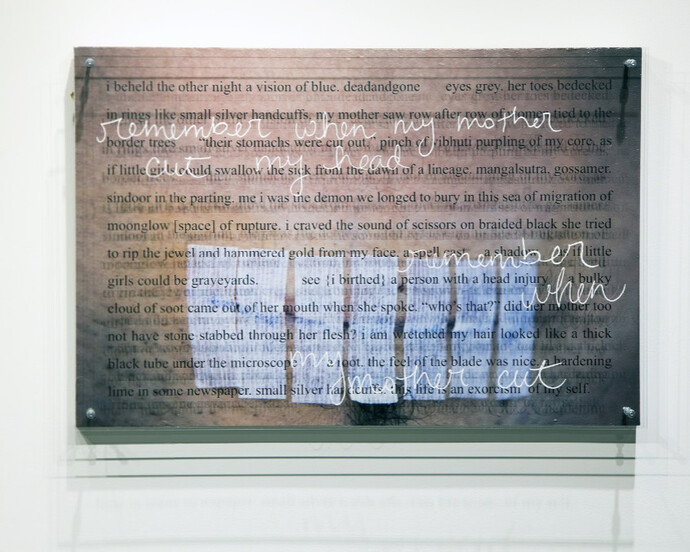 i beheld the other night a vision of blue. deadandgone eyes grey. her toes bedecked
in rings like small silver handcuffs. my mother saw row after row of tied to the
border trees "their stomachs were cut out." pinch of vibhuti purpling of my core. as
if little could swallow the sick from the dawn of a lineage. mangalsutra. gossamer.
sindoor in the parting. me i was the demon we longed to bury in this sea of migration of
moonglow [space] of rupture. i craved the sound of scissors on braided black she tried
to rip the jewel and hammered gold from my face. a spell cast. a little
girls could be graveyards. see {i birthed} a person with a head a bulky
cloud of soot came out of her mouth when she spoke. "who's that?" did her mother too
not have stone stabbed through her flesh? i am wretched my hair looked like a thick
black tube under the microscope root. the feel of the blade was nice. a hardening
lime in some newspaper. small silver handcuffs. this life is an exorcism of my self.
remember when my mother
cut my head
remember
when
my mother cut